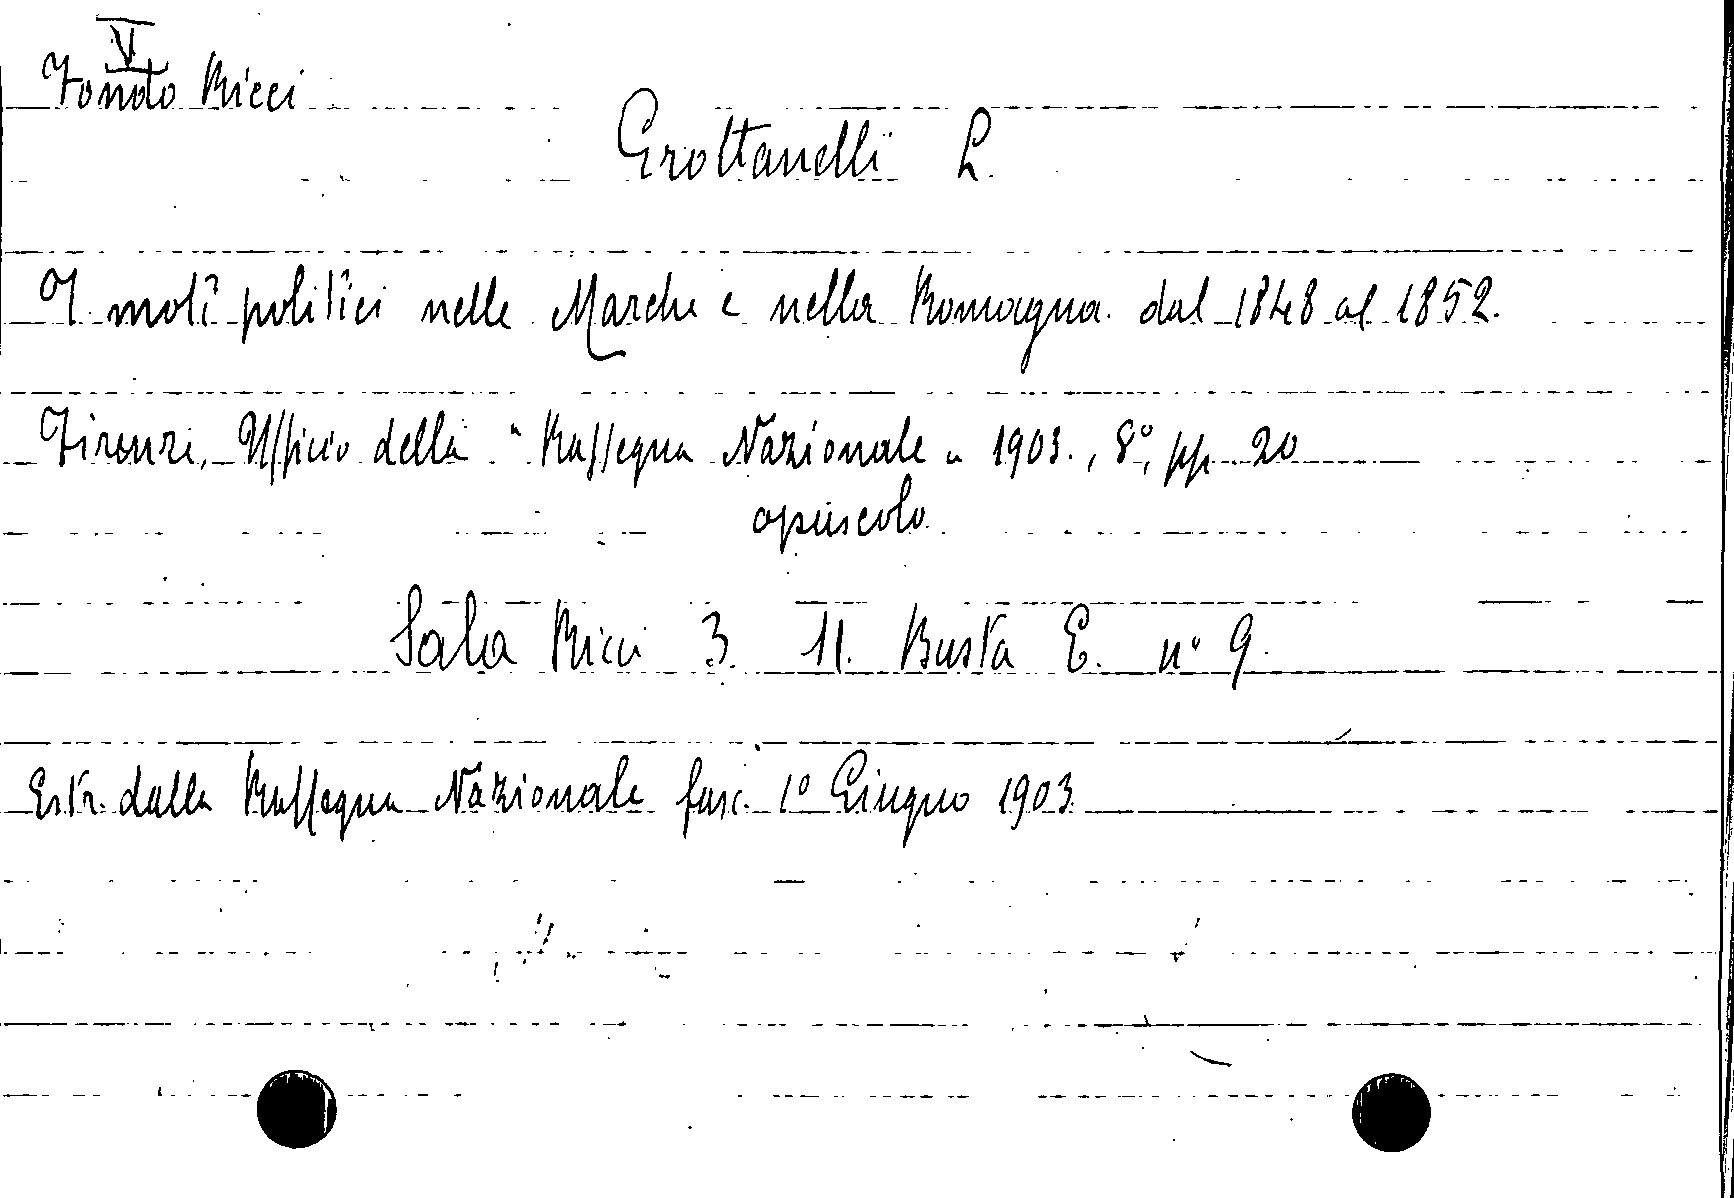 V
Fondo Ricci
Grottanelli L.
I moti politici nelle Marche e nella Romagna dal 1848 al 1852.
Firenze, Ufficio della "Rassegna Nazionale" 1903., 8°, pp. 20
opuscolo
Sala Ricci 3. 11. Busta E. n° 9.
Estr. dalla Rassegna Nazionale fasc. 1° Giugno 1903